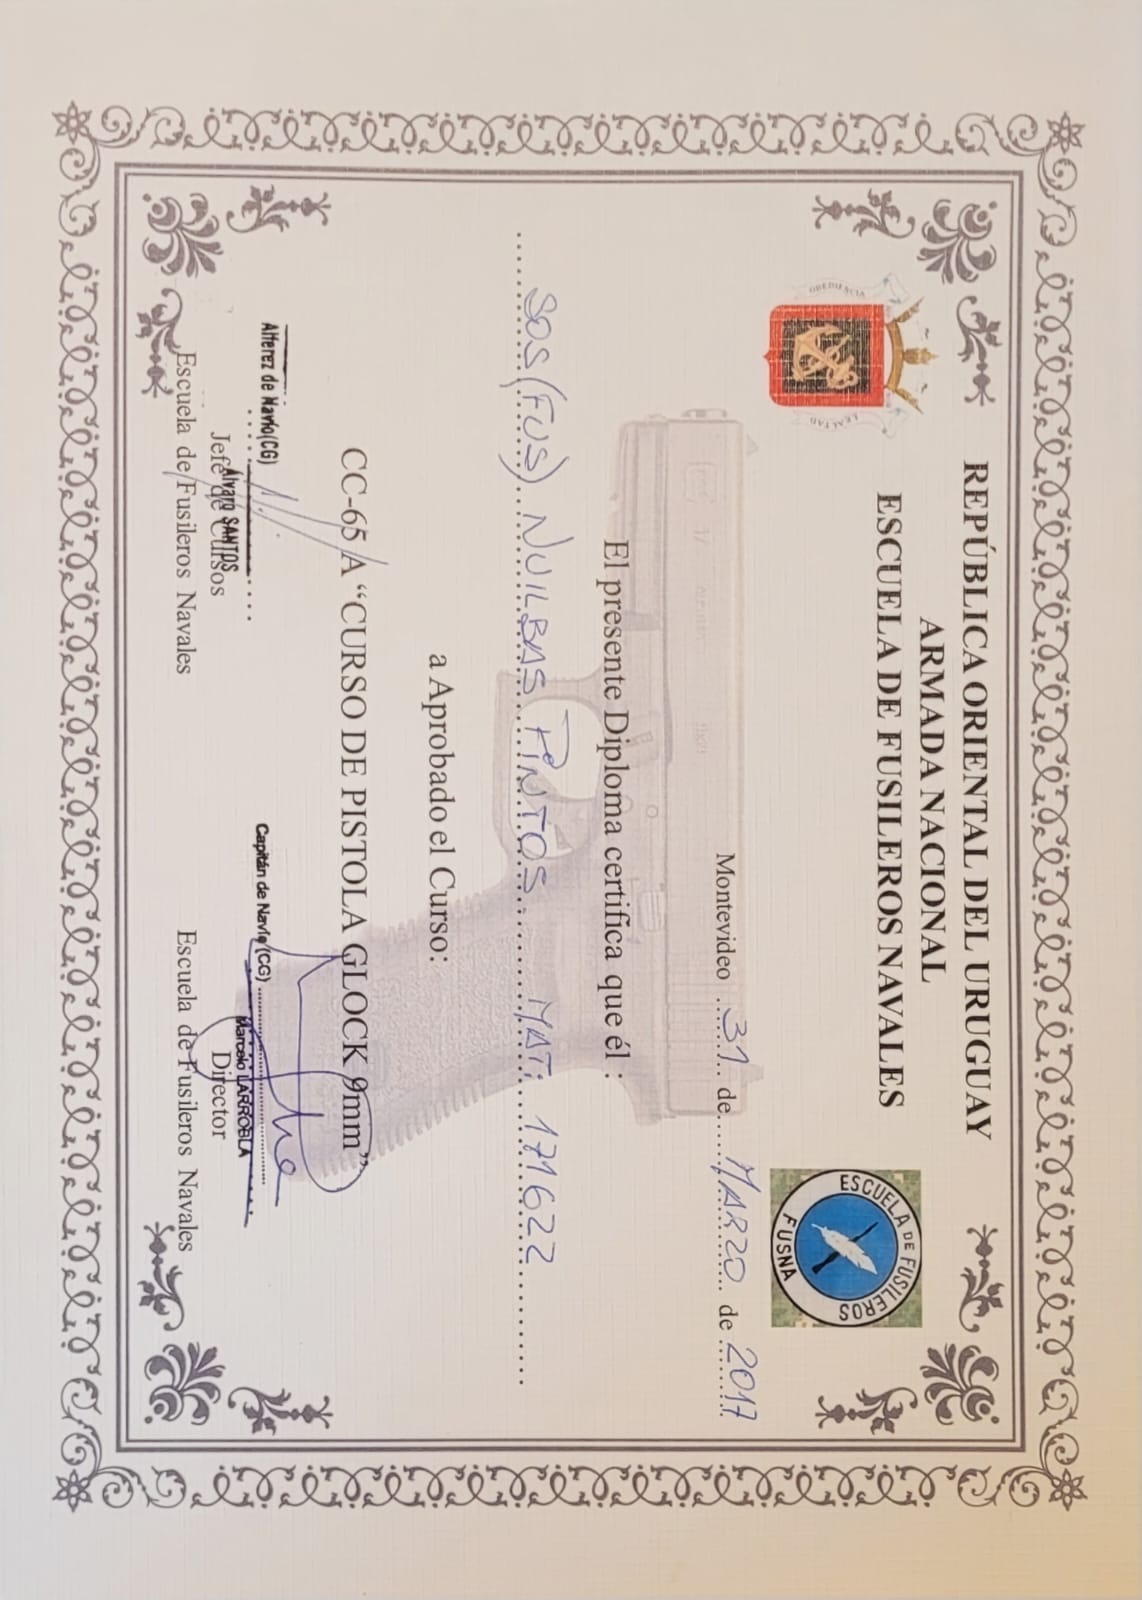 REPÚBLICA ORIENTAL DEL URUGUAY
ARMADA NACIONAL
ESCUELA DE FUSILEROS NAVALES
OBEDIENCIA
LEALTAD
ESCUELA DE FUSILEROS
FUSNA
Montevideo 31 de MARZO de 2017
El presente Diploma certifica que él :
SOS(FUS) NUILBAS PINTOS MAT: 171622
a Aprobado el Curso:
CC-65 A “CURSO DE PISTOLA GLOCK 9mm”
Alferez de Navío(CG)
Álvaro SANTOS
Jefe de Cursos
Escuela de Fusileros Navales
Capitán de Navío (CG)
Marcelo LARROBLA
Director
Escuela de Fusileros Navales